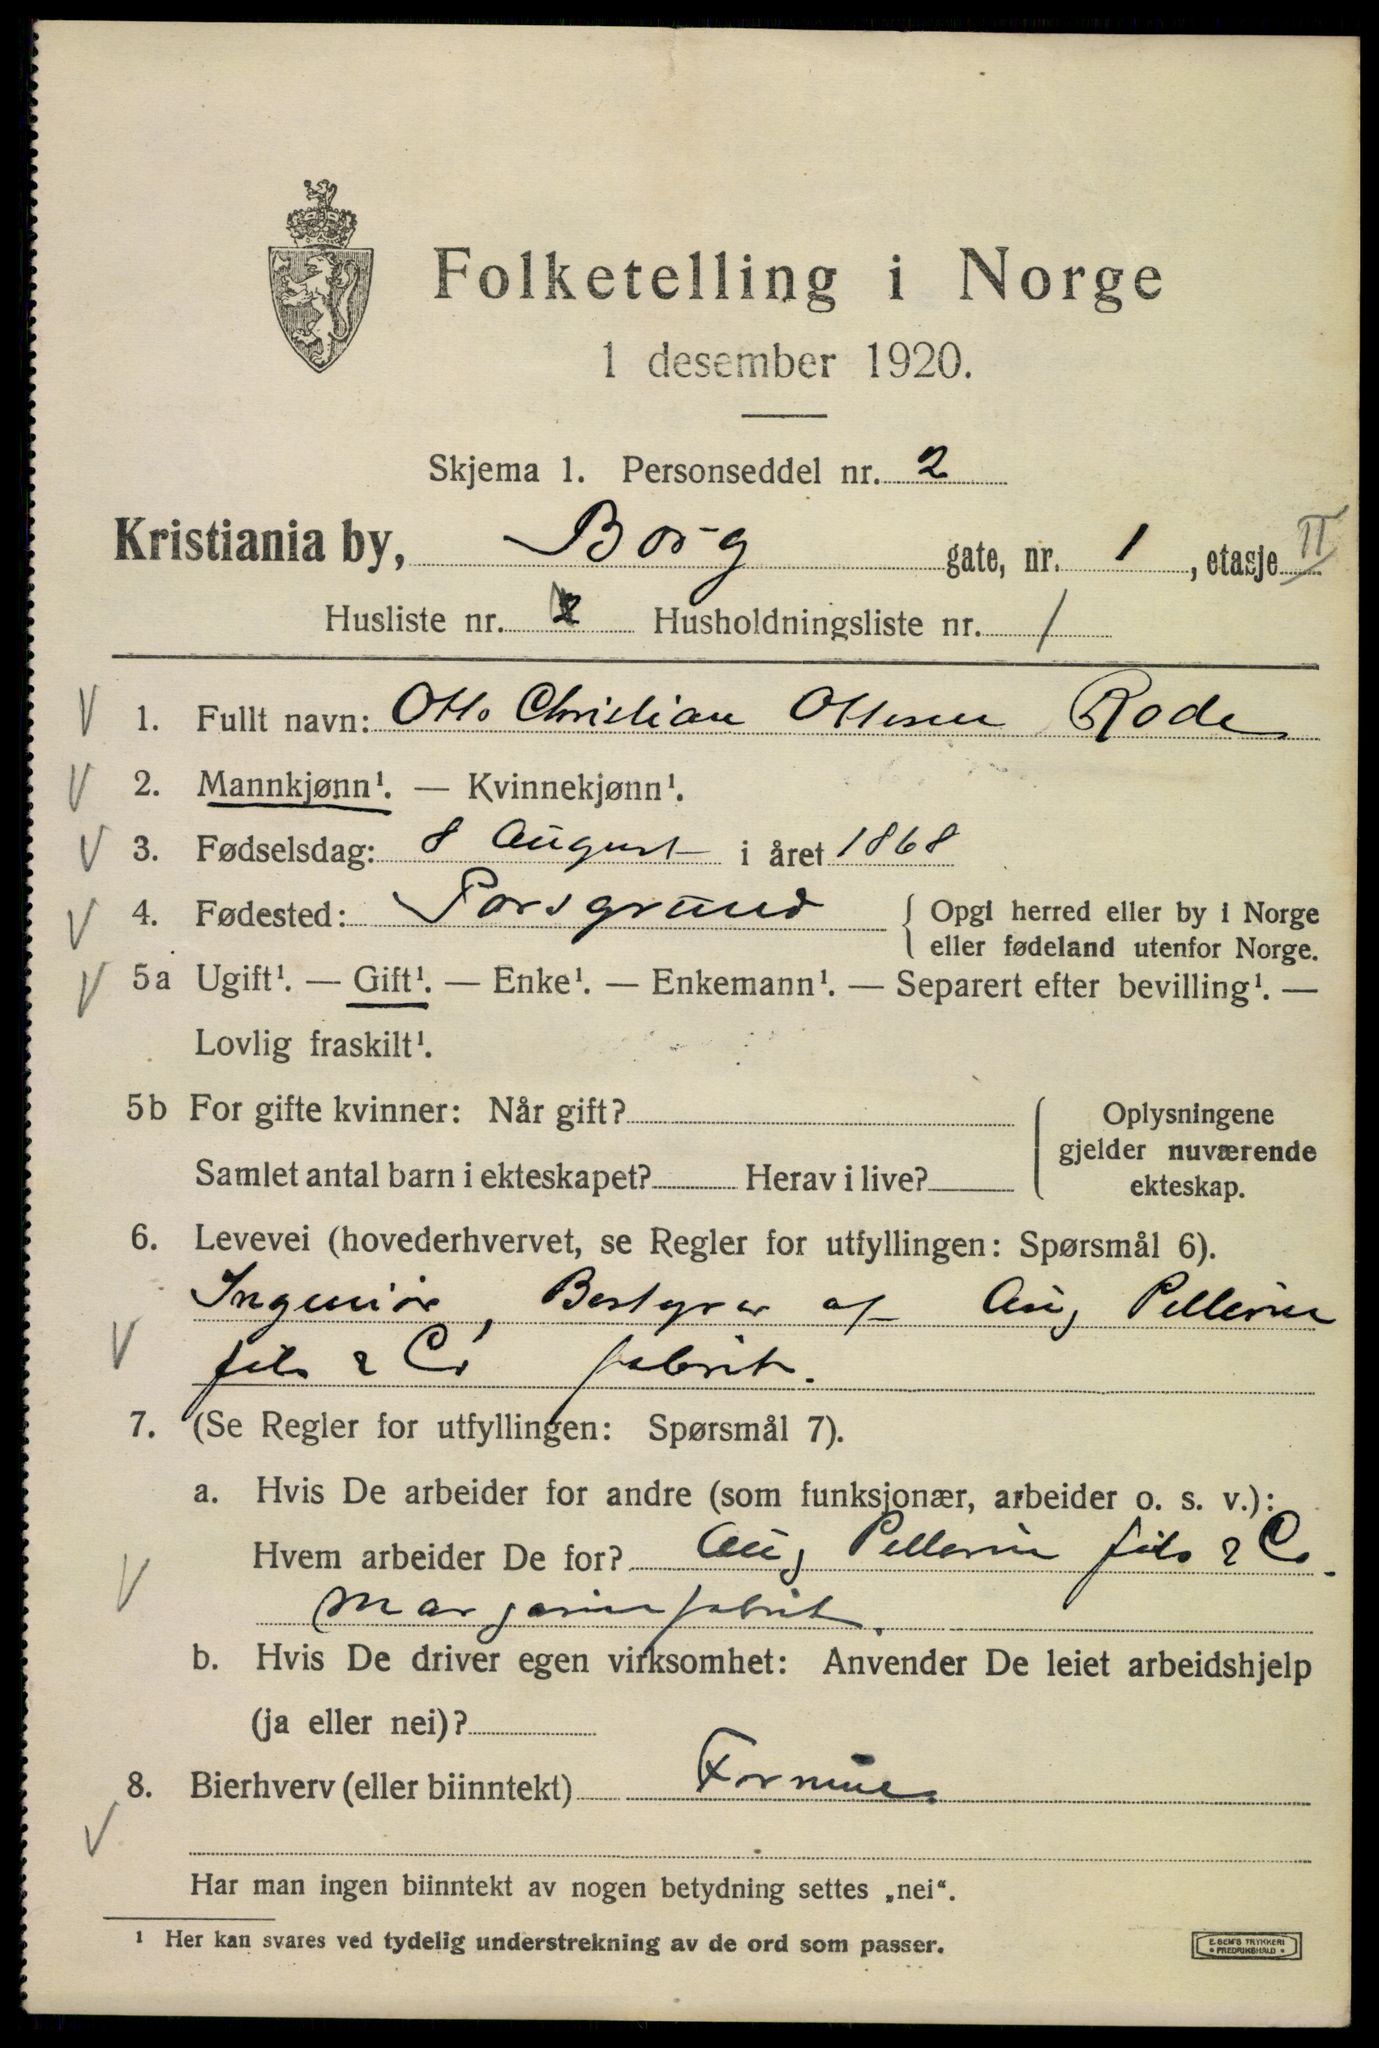 Folketelling i Norge
1 desember 1920.
Skjema 1. Personseddel nr. 2
Kristiania by, Borg gate, nr. 1, etasje II
Husliste nr. 2 Husholdningsliste nr. 1
1. Fullt navn: Otto Christian Ottesen Rode
2. Mannkjønn¹. — Kvinnekjønn¹.
3. Fødselsdag: 8 August i året 1868
4. Fødested: Porsgrund { Opgi herred eller by i Norge
eller fødeland utenfor Norge.
5a Ugift¹. — Gift¹. — Enke¹. — Enkemann¹. — Separert efter bevilling¹. —
Lovlig fraskilt¹.
5b For gifte kvinner: Når gift?
Samlet antal barn i ekteskapet? Herav i live?
Oplysningene
gjelder nuværende
ekteskap.
6. Levevei (hovederhvervet, se Regler for utfyllingen: Spørsmål 6).
Ingeniør, Bestyrer af Aug Pellerin
fils & Co fabrik.
7. (Se Regler for utfyllingen: Spørsmål 7).
a. Hvis De arbeider for andre (som funksjonær, arbeider o. s. v.):
Hvem arbeider De for? Aug Pellerin fils & Co.
Margarinfabrik.
b. Hvis De driver egen virksomhet: Anvender De leiet arbeidshjelp
(ja eller nei)?
8. Bierhverv (eller biinntekt) Formue.
Har man ingen biinntekt av nogen betydning settes „nei“.
¹ Her kan svares ved tydelig understrekning av de ord som passer.
E. SEM'S TRYKKERI
• FREDRIKSHALD •